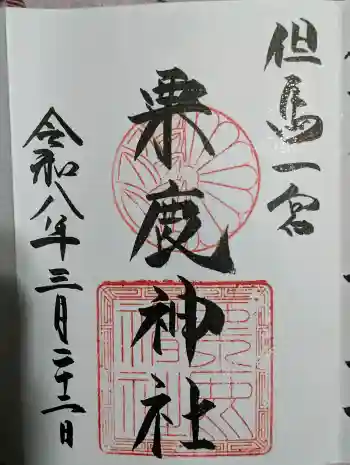 但馬一宮
粟鹿神社
令和八年三月二十二日
粟鹿神社